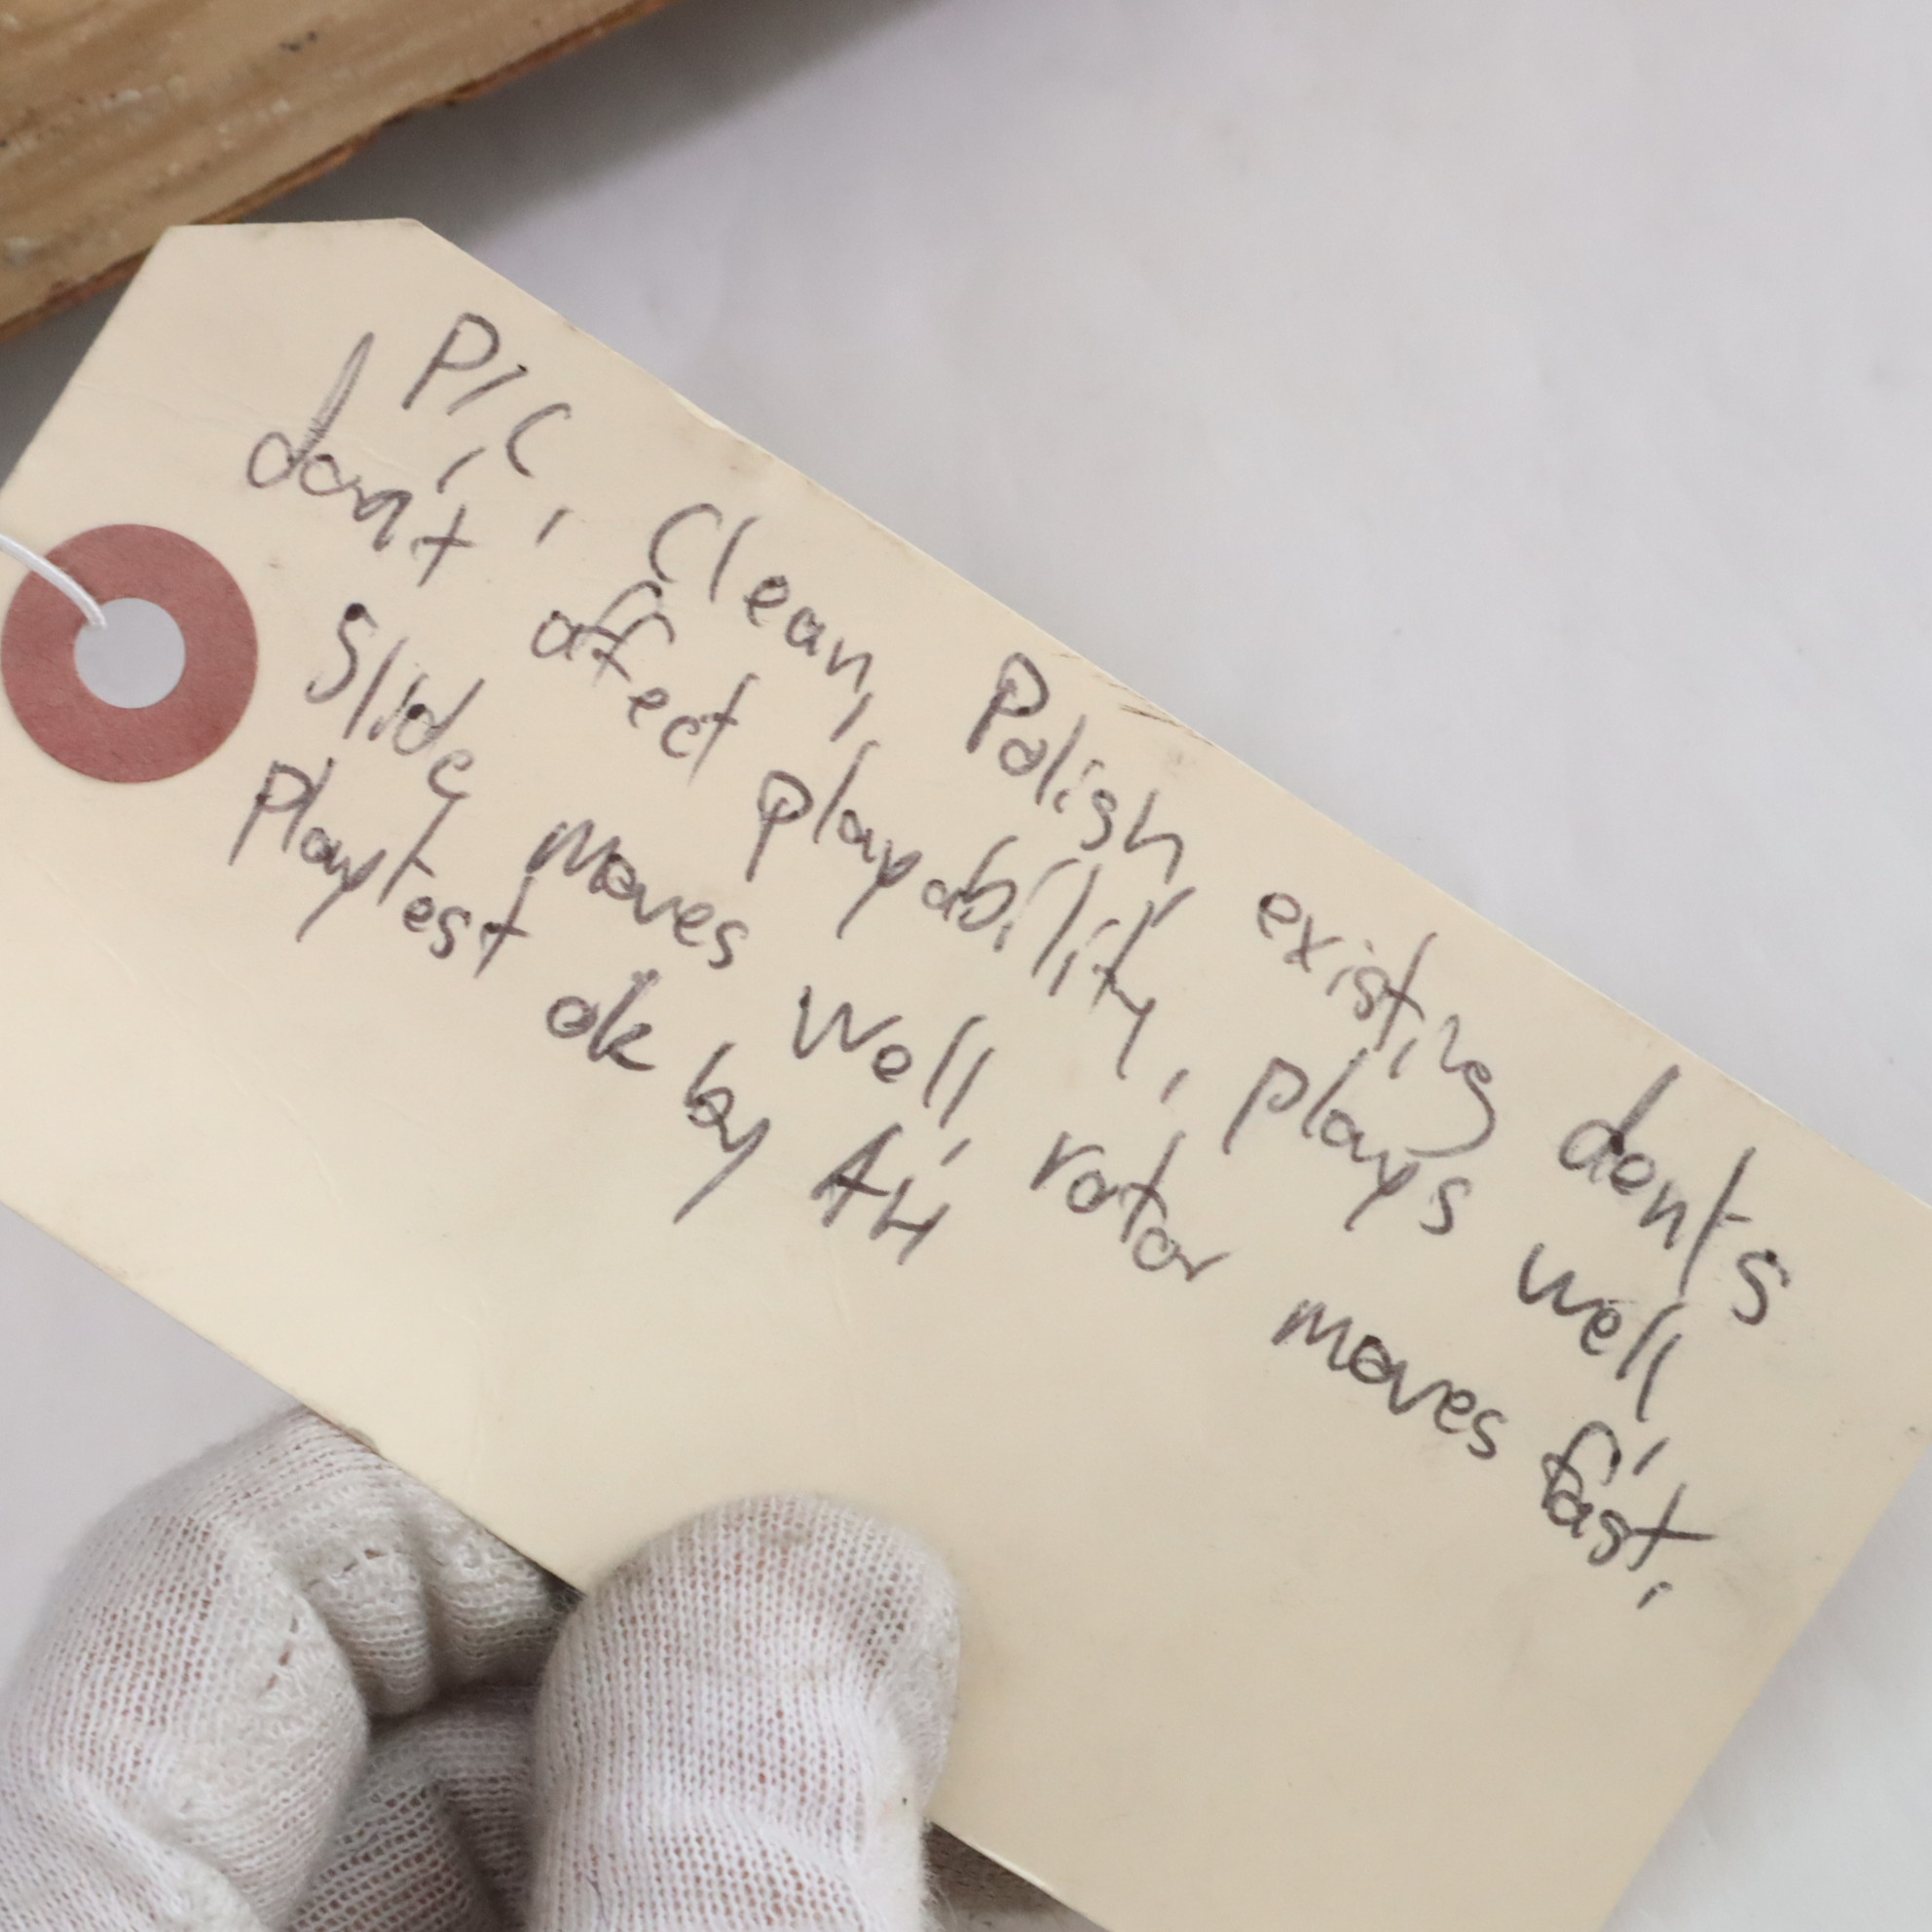 P/C, Clean, Polish existing dents
don't affect playability, plays well,
Slide moves well, rotor moves fast,
Playtest ok by AH